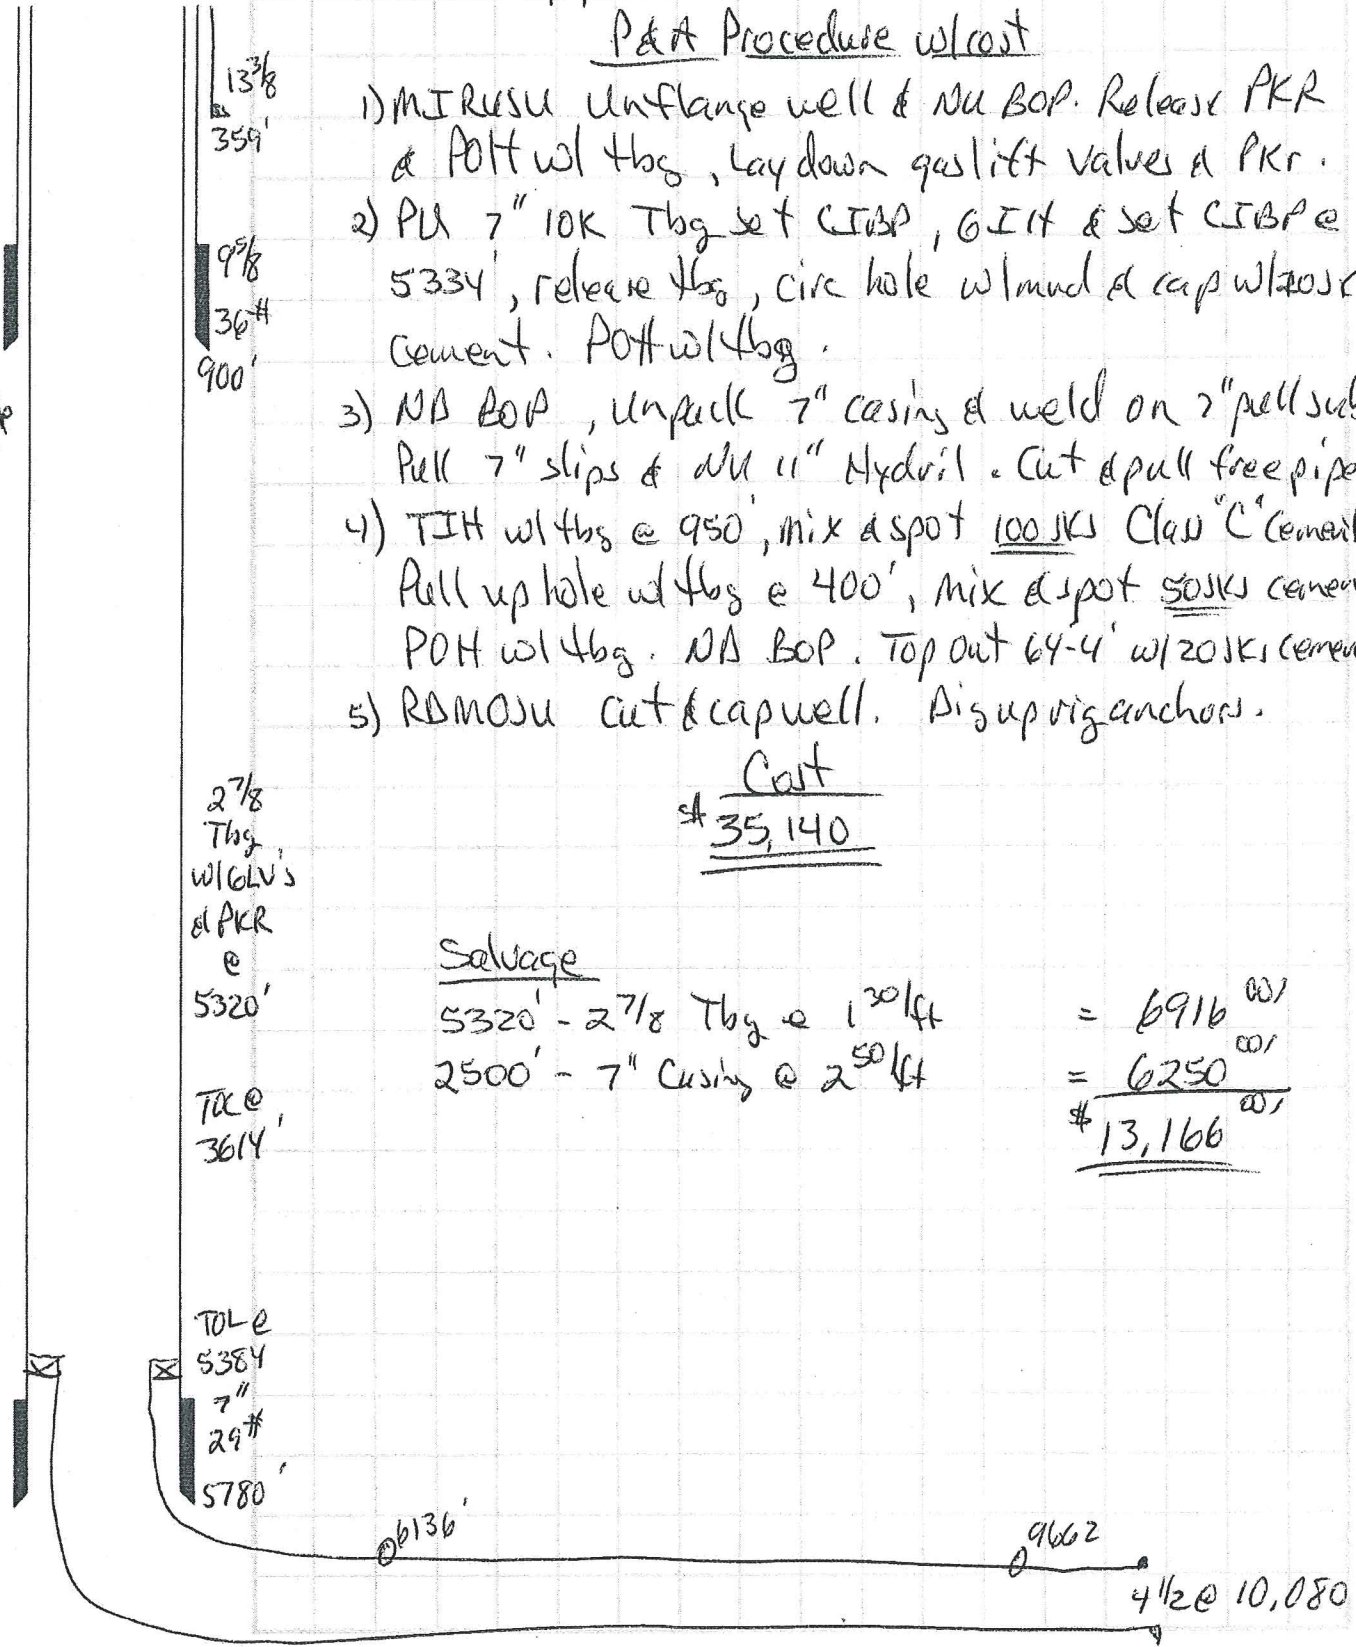 P&A Procedure w/cost
1) MIRUSU Unflange well & NU BOP. Release PKR
& POH w/ tbg, Lay down gas lift valves & PKr.
2) PU 7" 10K Tbg set CIBP, GIH & set CIBP @
5334', release tbg, circ hole w/mud & cap w/20sk
Cement. POH w/tbg.
3) ND BOP, Unpack 7" casing & weld on 7" pull sub
Pull 7" slips & NU 11" Hydril. Cut & pull free pipe
4) TIH w/ tbg @ 950', mix & spot 100sks Class "C" Cement
Pull up hole w/ tbg @ 400', mix & spot 50sks cemen
POH w/ tbg. ND BOP. Top Out 64-4' w/20sks cemen
5) RDMOSU Cut & cap well. Dig up rig anchors.
Cost
$35,140
Salvage
5320' - 2 7/8 Tbg @ 1 30/ft = 6916 00/
2500' - 7" Casing @ 2 50/ft = 6250 00/
$13,166 00/
13 3/8
359'
9 5/8
36#
900'
2 7/8
Tbg
w/GLV's
& PKR
@
5320'
TOC @
3614'
TOL @
5384
7"
29#
5780'
6136'
9662
4 1/2 @ 10,080